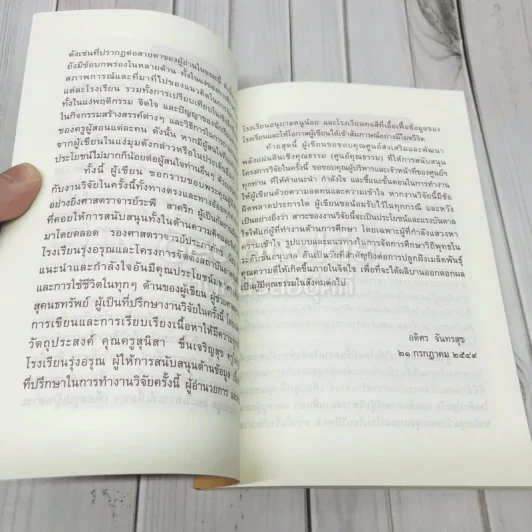 ดังเช่นที่ปรากฏต่อสายตาของผู้อ่านในขณะนี้
ยังมีข้อบกพร่องในหลายด้าน ทั้งในแง่ของ
สภาพการณ์และที่มาที่ไปของแนวคิดใน
แต่ละโรงเรียน รวมทั้งการเปรียบเทียบใน
ทั้งในแง่พฤติกรรม จิตใจ และปัญญาของ
ในกิจกรรมสร้างสรรค์ต่างๆ และวิธีการใน
ของครูผู้สอนแต่ละคน ดังนั้น หากมีผู้สนใจ
จากผู้เขียนในแง่มุมดังกล่าวหรือประเด็น
ประโยชน์ไม่มากก็น้อยต่อผู้สนใจท่านอื่นๆ
ทั้งนี้ ผู้เขียน ขอกราบขอบพระคุณ
กับงานวิจัยในครั้งนี้ทั้งทางตรงและทางอ้อม
อย่างยิ่งศาสตราจารย์ระพี สาคริก ผู้เป็น
ที่คอยให้การสนับสนุนทั้งในด้านความคิด
มาโดยตลอด รองศาสตราจารย์ประภาภัทร
โรงเรียนรุ่งอรุณและโครงการจัดตั้งสถาบัน
แนะนำและกำลังใจอันมีคุณประโยชน์
และการใช้ชีวิตในทุกๆ ด้านของผู้เขียน
สุคนธทรัพย์ ผู้เป็นที่ปรึกษางานวิจัยในครั้งนี้
การเขียนและการเรียบเรียงเนื้อหาให้มีความ
วัตถุประสงค์ คุณครูสุนิสา ชื่นเจริญสุข
โรงเรียนรุ่งอรุณ ผู้ให้การสนับสนุนด้านข้อมูล
ที่ปรึกษาในการทำงานวิจัยครั้งนี้ ผู้อำนวยการ
โรงเรียนอนุบาลหนูน้อย และโรงเรียนทอสีที่เอื้อเฟื้อข้อมูลของ
โรงเรียนและให้โอกาสผู้เขียนได้เข้าสัมภาษณ์อย่างมีไมตรีจิต
ท้ายสุดนี้ ผู้เขียนขอขอบคุณศูนย์ส่งเสริมและพัฒนา
พลังแผ่นดินเชิงคุณธรรม (ศูนย์คุณธรรม) ที่ให้การสนับสนุน
โครงการวิจัยในครั้งนี้ ขอขอบคุณผู้บริหารและเจ้าหน้าที่ของศูนย์ฯ
ทุกท่าน ที่ให้คำแนะนำ กำลังใจ และชี้แนะขั้นตอนในการทำงาน
ให้ผู้เขียนด้วยความอดทนและความเข้าใจ หากงานวิจัยนี้มีข้อ
ผิดพลาดประการใด ผู้เขียนขอน้อมรับไว้ในทุกกรณี และหวัง
เป็นอย่างยิ่งว่า สาระของงานวิจัยนี้จะเป็นประโยชน์และแรงบันดาล
ใจให้แก่ผู้ที่ทำงานด้านการศึกษา โดยเฉพาะผู้ที่กำลังแสวงหา
ความเข้าใจ รูปแบบและแนวทางในการจัดการศึกษาวิถีพุทธใน
ระดับชั้นอนุบาล อันเป็นวัยที่สำคัญยิ่งต่อการปลูกฝังเมล็ดพันธุ์
คุณความดีให้เกิดขึ้นภายในจิตใจ เพื่อที่จะได้ผลิบานออกดอกผล
เป็นผู้มีคุณธรรมในสังคมต่อไป
อดิศร จันทรสุข
๒๑ กรกฎาคม ๒๕๔๙